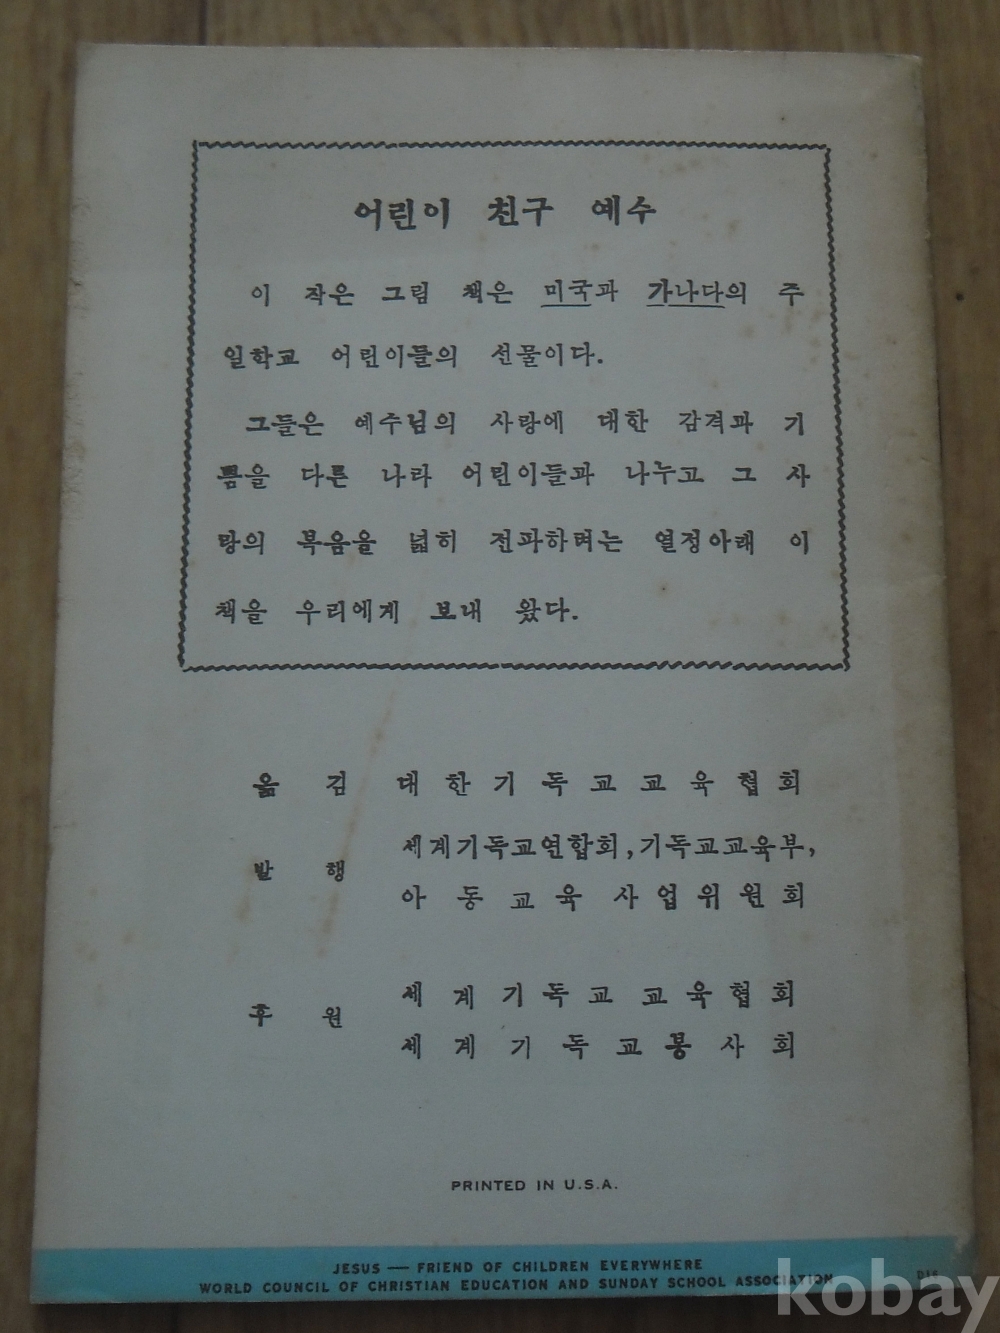 어린이 친구 예수
이 작은 그림 책은 미국과 가나다의 주
일학교 어린이들의 선물이다.
그들은 예수님의 사랑에 대한 감격과 기
쁨을 다른 나라 어린이들과 나누고 그 사
랑의 복음을 넓히 전파하려는 열정아래 이
책을 우리에게 보내 왔다.
옮 김 대한기독교교육협회
세계기독교연합회,기독교교육부,
발 행
아동교육 사업위원회
세계기독교교육협회
후 원
세계기독교봉사회
PRINTED IN U.S.A.
JESUS — FRIEND OF CHILDREN EVERYWHERE
WORLD COUNCIL OF CHRISTIAN EDUCATION AND SUNDAY SCHOOL ASSOCIATION
kobay